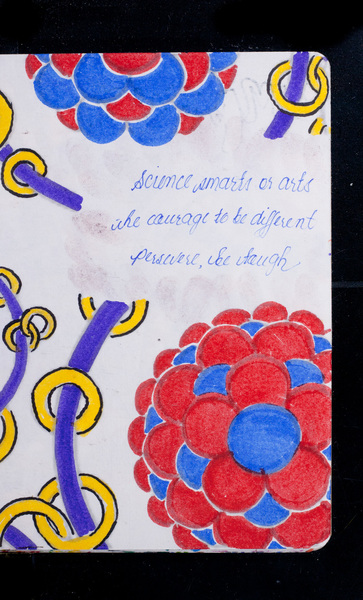 Science smarts or arts
the courage to be different
Persevere, be tough